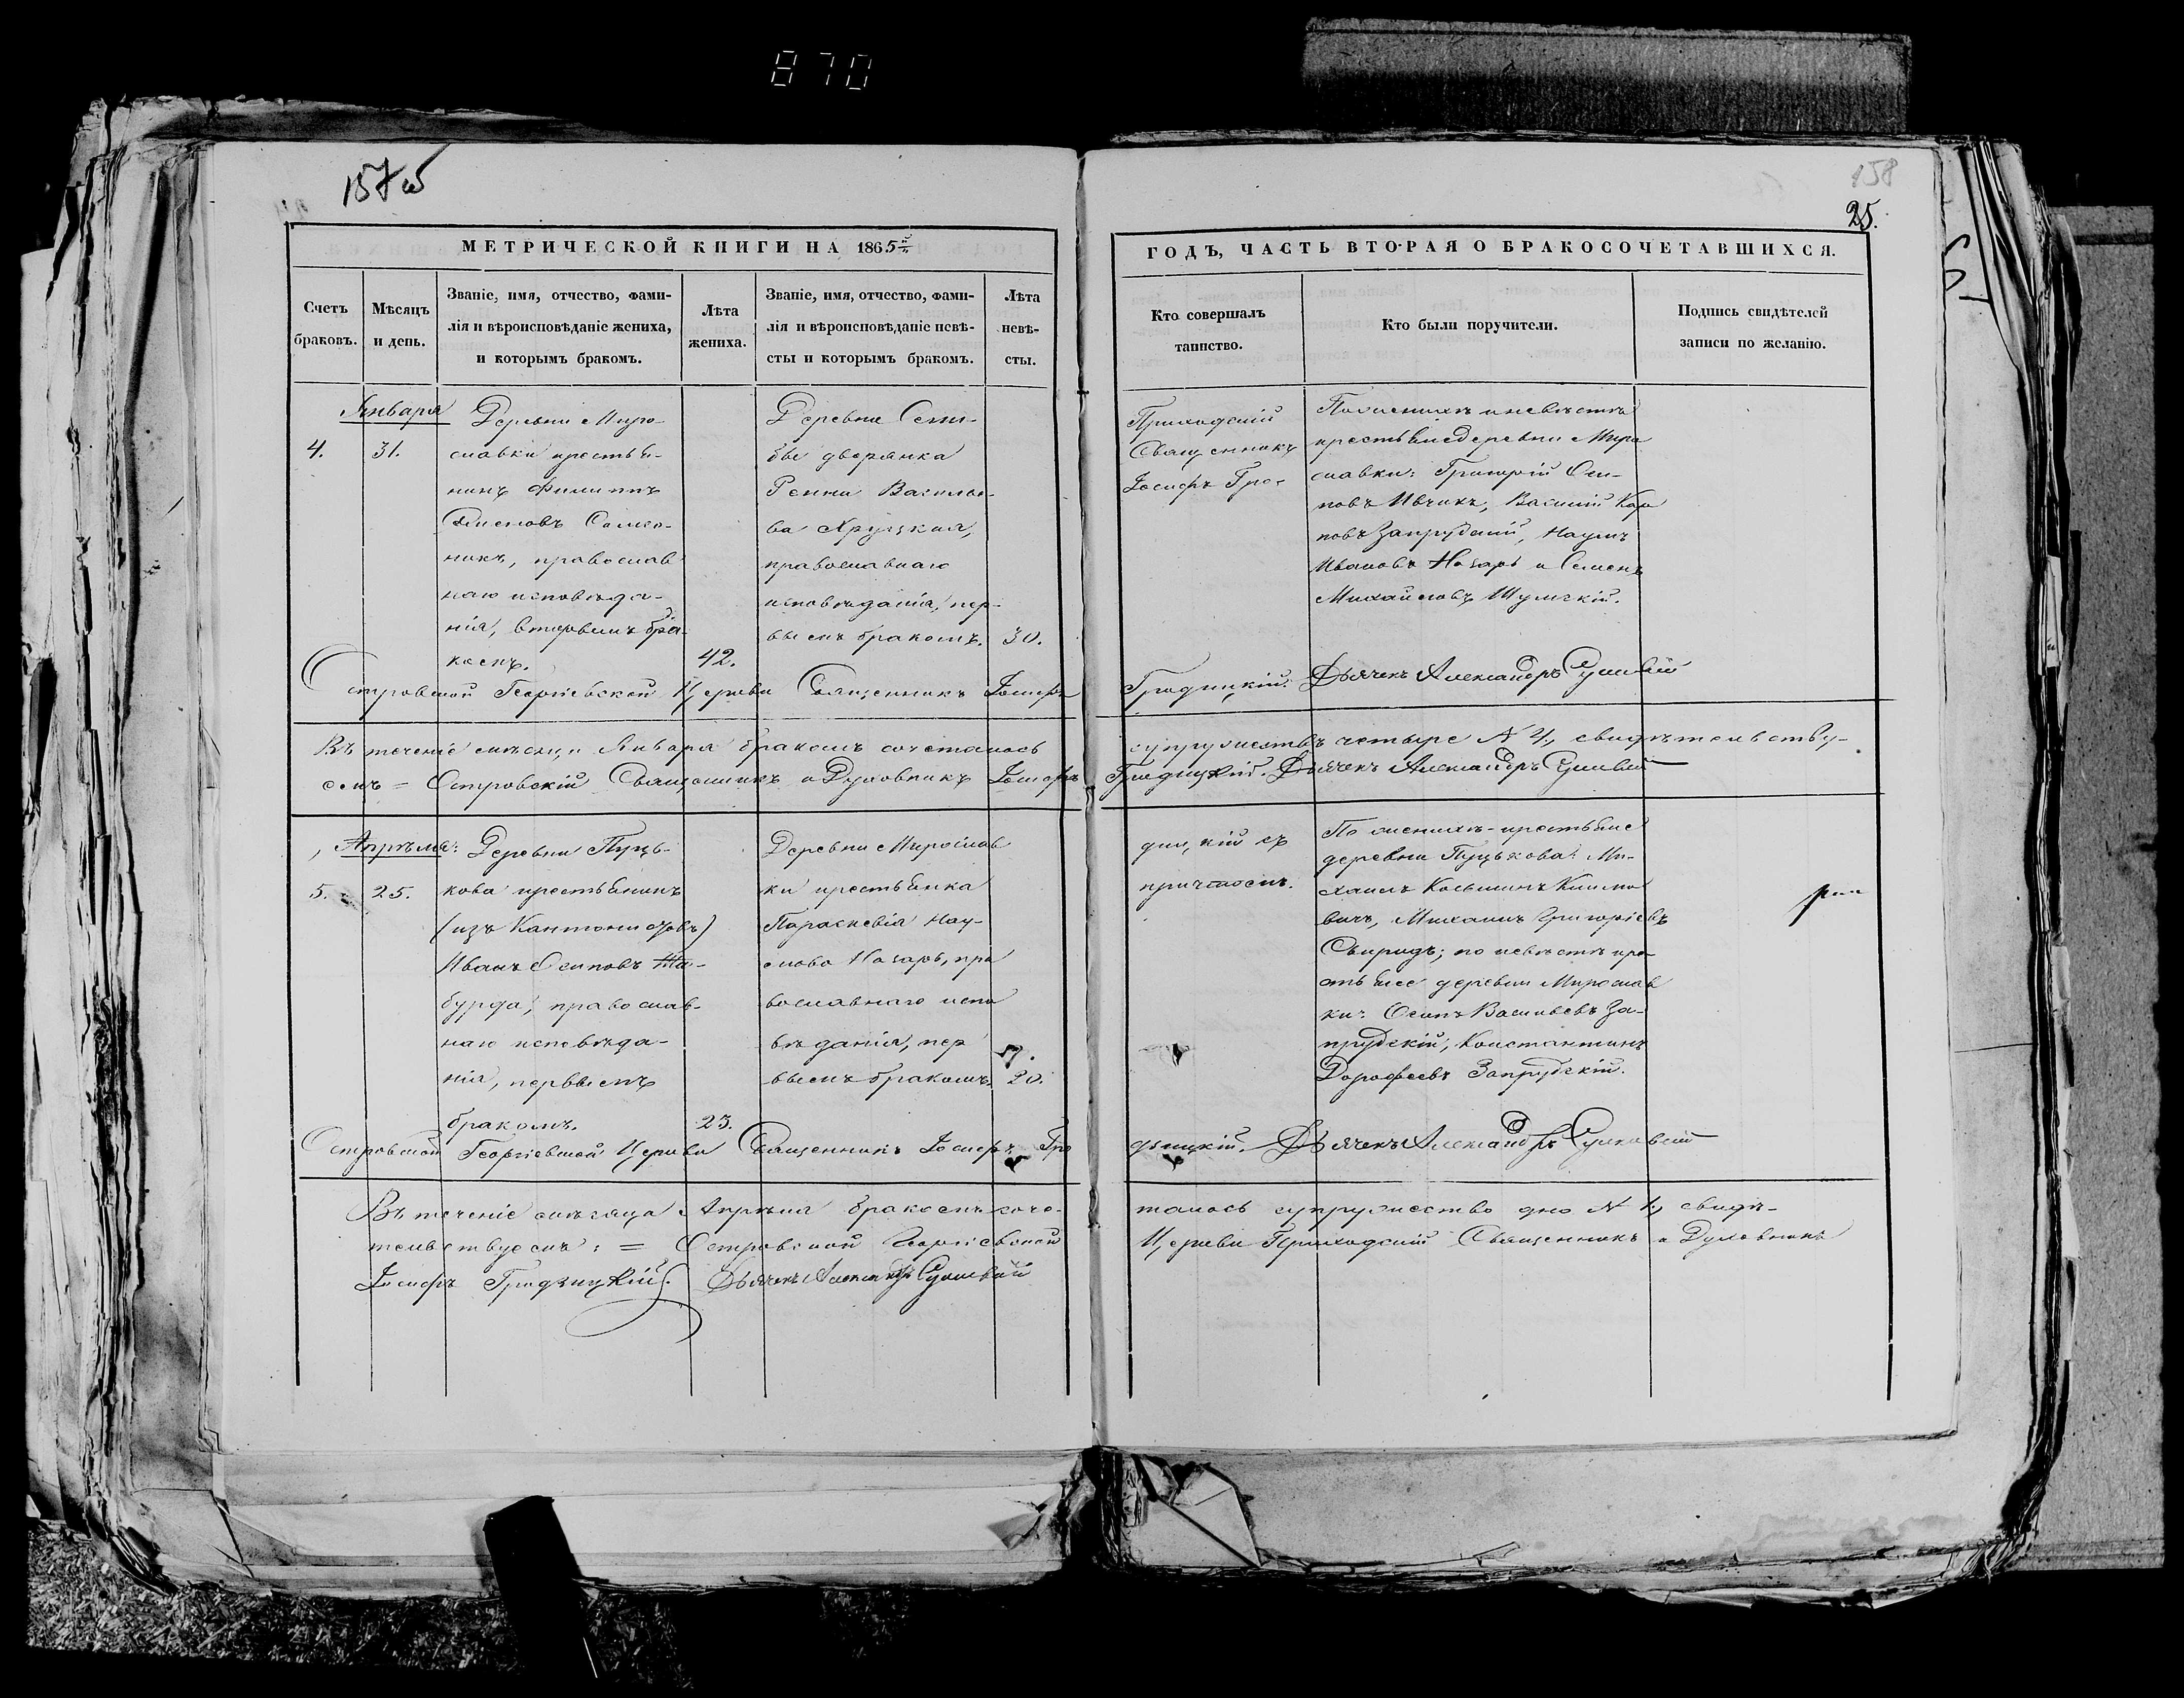 870
157 об
158
25.
МЕТРИЧЕСКОЙ КНИГИ НА 1865й
ГОДЪ, ЧАСТЬ ВТОРАЯ О БРАКОСОЧЕТАВШИХСЯ.
Счетъ
браковъ.
Мѣсяцъ
и день.
Званіе, имя, отчество, фами-
лія и вѣроисповѣданіе жениха,
и которымъ бракомъ.
Лѣта
жениха.
Званіе, имя, отчество, фами-
лія и вѣроисповѣданіе невѣ-
сты и которымъ бракомъ.
Лѣта
невѣ-
сты.
Кто совершалъ
таинство.
Кто были поручители.
Подпись свидѣтелей
записи по желанію.
Января
4.
31.
Деревни Миро-
славки крестья-
нинъ Филиппъ
Семе-
никъ, православ-
наго исповѣда-
нія, вторымъ бра-
комъ.
42.
Деревни
бы дворянка
Васильe-
ва Хруцкая,
православнаго
исповѣданія, пер-
вымъ бракомъ.
30.
Приходскій
Священникъ
Іосифъ Гро-
По женихѣ и невѣстѣ
крестьяне деревни Миро
славки: Григорій Оси-
повъ Ивчикъ, Василій Кар
повъ Запрудскій, Наумъ
Ивановъ Назаръ и Семенъ
Михайловъ Шумскій.
Островской Георгіевской Церкви Священникъ Іосифъ
Гродзицкій. Дьячекъ Александръ
Въ теченіе мѣсяца Января бракомъ сочеталось
супружествъ четыре N 4, свидѣтельству-
емъ = Островскій Священникъ и Духовникъ Іосифъ
Гродзицкій. Дьячекъ Александръ
Апрѣля:
5.
25.
Деревни Пуць-
кова крестьянинъ
(изъ Кантонистовъ)
Иванъ Осиповъ Жа-
бурда, православ-
наго исповѣда-
нія, первымъ
бракомъ.
23.
Деревни Мирослав
ки крестьянка
Параскевія Нау-
мова Назаръ, пра
вославнаго испо
вѣданія, пер
вымъ бракомъ.
20.
дзицкій съ
причтомъ.
По женихѣ - крестьяне
деревни Пуцькова: Ми-
хаилъ Косьминъ Климо
вичъ, Михаилъ Григорьевъ
Свиридъ; по невѣстѣ кре-
стьяне деревни Мирослав
ки: Осипъ Васильевъ За-
прудскій, Константинъ
Дорофеевъ Запрудскій.
Островской Георгіевской Церкви Священникъ Іосифъ Гро
дзицкій. Дьячекъ Александръ
Въ теченіе мѣсяца Апрѣля бракомъ соче-
талось супружество одно N 1, свидѣ-
тельствуемъ: = Островской Георгіевской
Церкви Приходскій Священникъ и Духовникъ
Іосифъ Гродзицкій. Дьячекъ Александръ